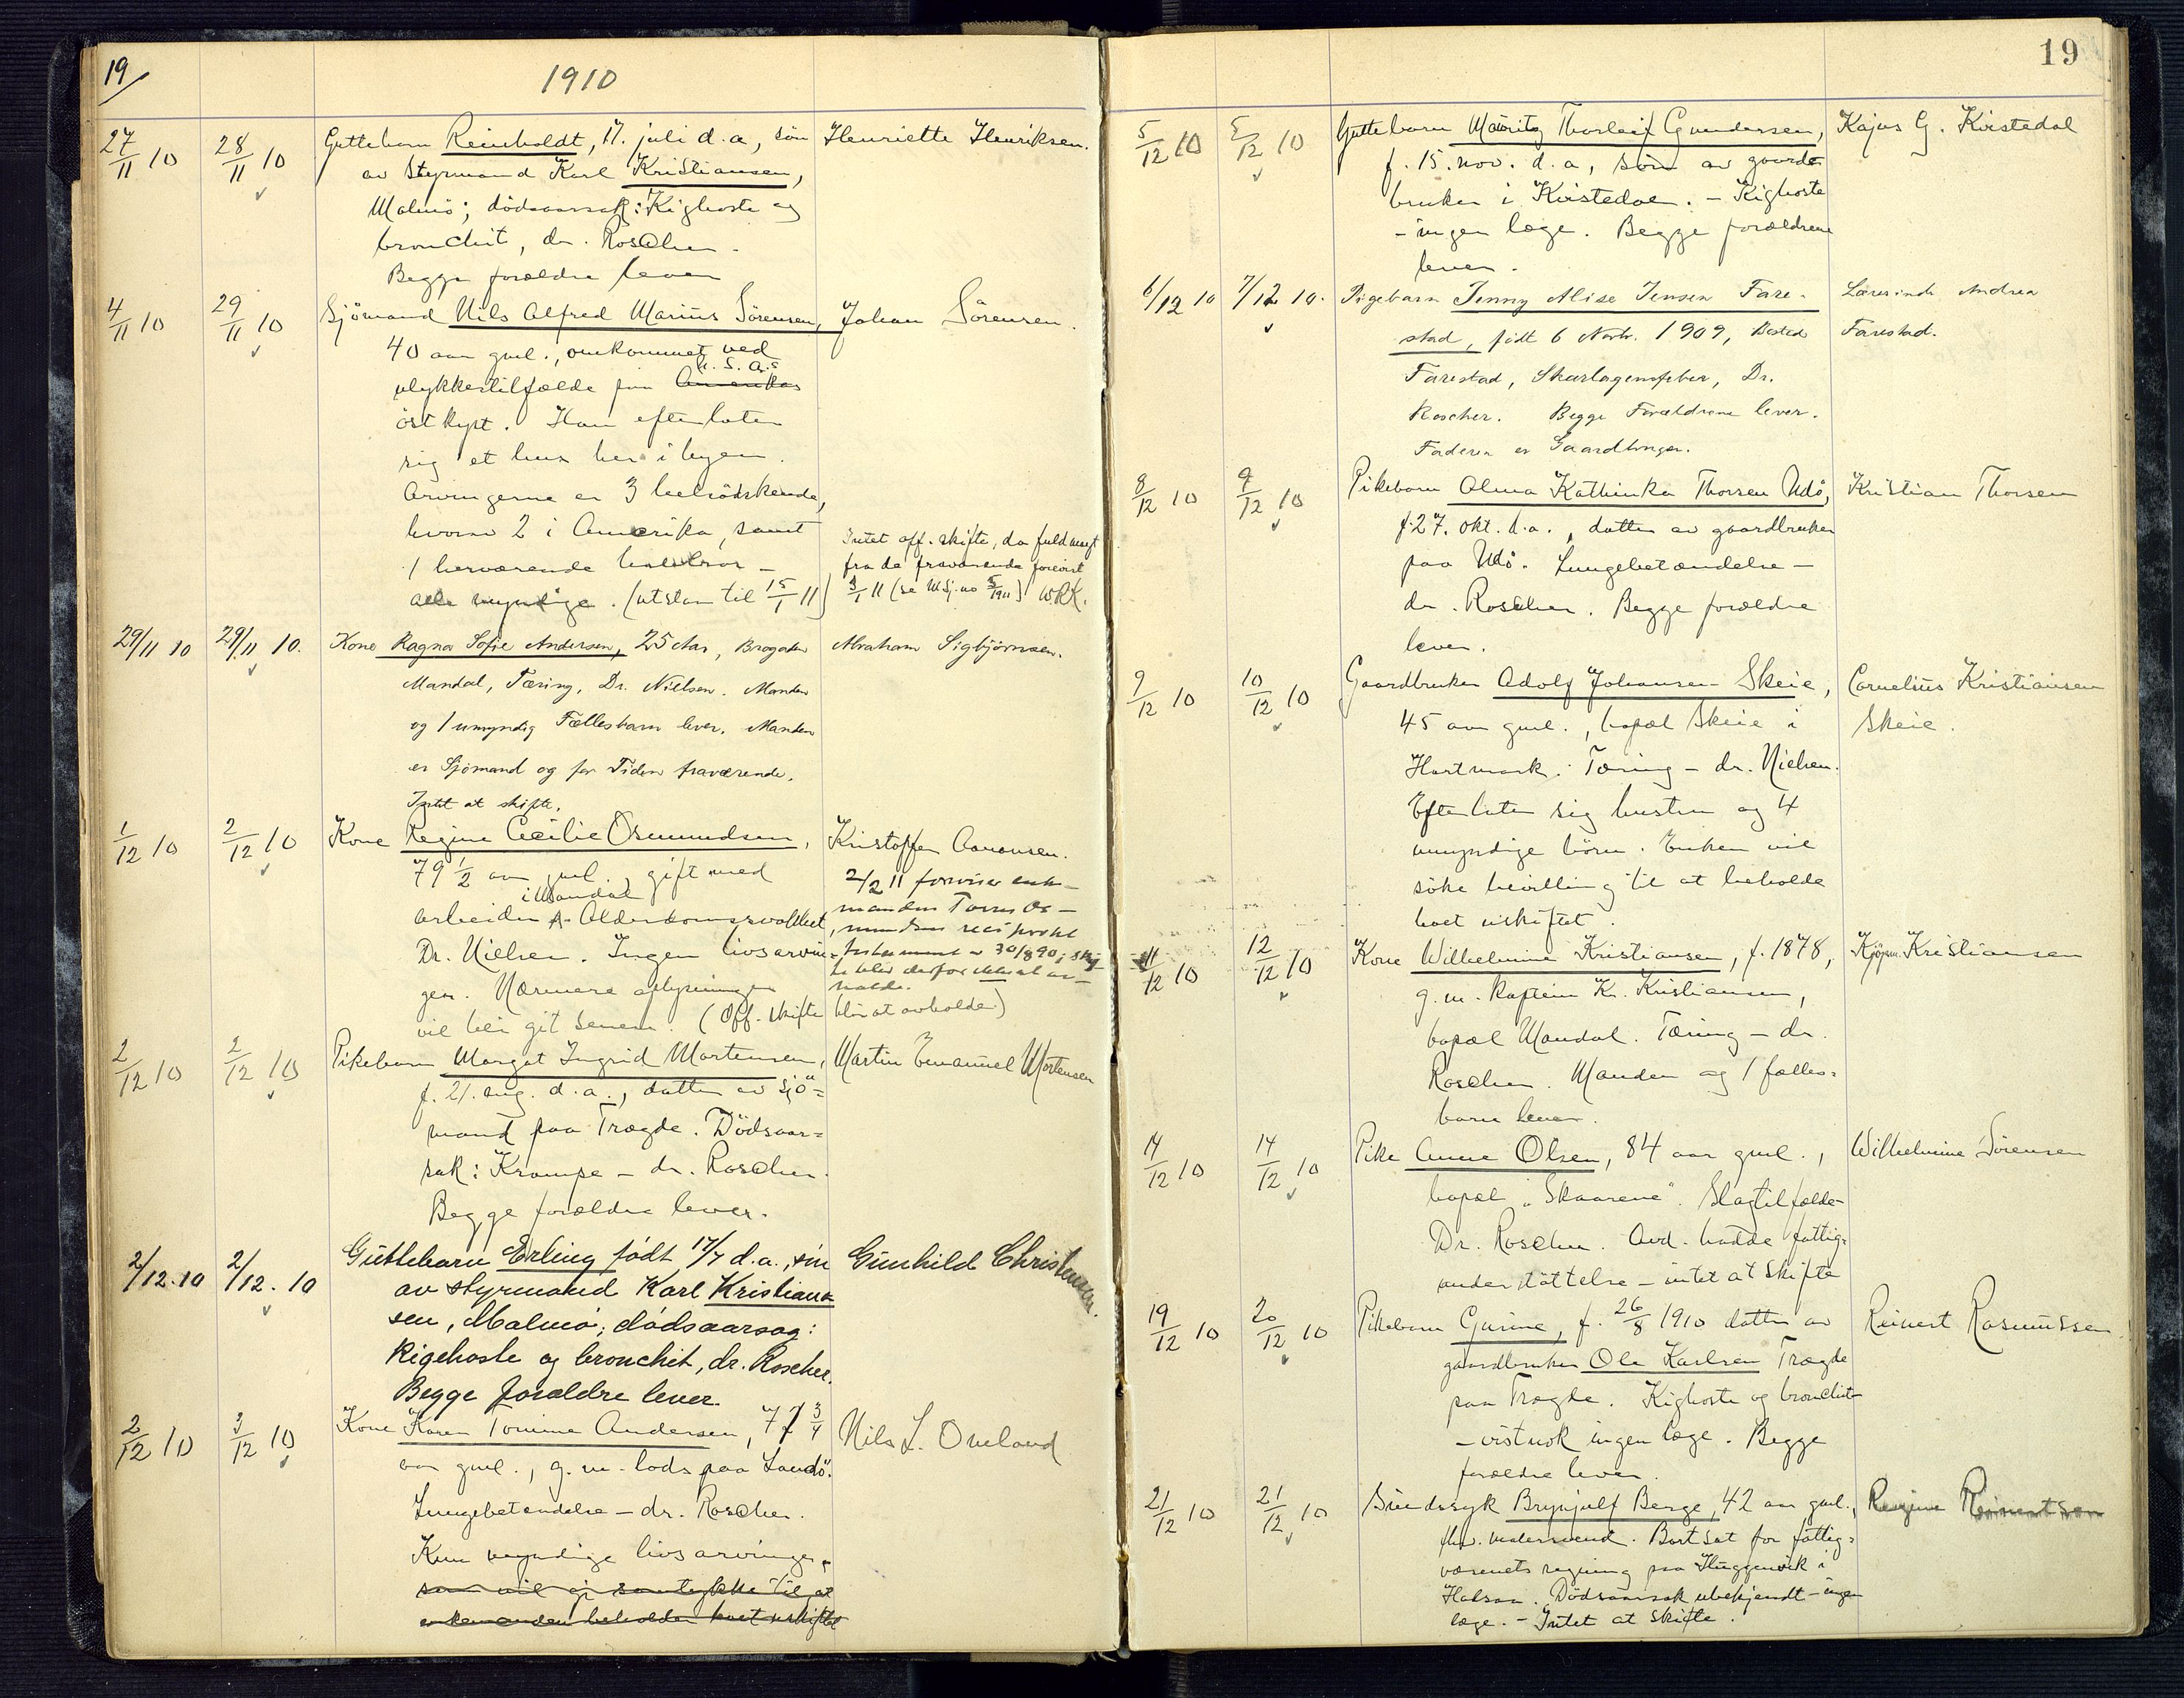 19/
1910
27/11 10 28/11 10 Guttebarn Reinholdt, 17. juli d.a., sön Henriette Henriksen.
av Styrmand Karl Kristiansen,
Malmö; dödsaarsak: Kighoste og
bronchit, dr. Roscher.
Begge forældre lever
4/11 10 29/11 10 Sjömand Nils Alfred Marius Sörensen, Johan Sörensen.
40 aar gml., omkommet ved
U.S.A.s
ulykkestilfælde paa Amerikas
östkyst. Han efterlater
sig et hus her i byen.
Arvingerne er 3 helsödskende,
hvorav 2 i Amerika, samt
1 herværende halvbror -
alle myndige. (utslær til 15/1 11)
Intet off. skifte, da fuldmagt
fra de fraværende forevist
3/1 11 (se W.Sj. no 5/1911) WRK.
29/11 10 29/11 10. Kone Ragna Sofie Andersen, 25 Aar, Brogaten Abraham Sigbjörnsen.
Mandal, Tæring, Dr. Nielsen. Manden
og 1 umyndig Fællesbarn lever. Manden
er Sjömand og for Tiden fraværende.
Intet at skifte.
1/12 10 2/12 10 Kone Regine Cecilie Osmundsen, Kristoffer Aanonsen.
79 1/2 aar gml., gift med
i Mandal
arbeider. Alderdomssvakhet,
Dr. Nielsen. Ingen livsarvin-
ger. Nærmere oplysninger
vil bli git senere. (Off. skifte blir at avholde)
2/2 11 foreviser enke-
manden Tarres Os-
mundsen reciprokt
testament av 30/8 90; skif-
te blir derfor ikke at av-
holde.
2/12 10 2/12 10 Pikebarn Margot Ingrid Mortensen, Martin Emanuel Mortensen
f. 21. aug. d.a., datter av sjö-
mand paa Trægde. Dödsaar-
sak: Krampe - dr. Roscher.
Begge forældre lever.
2/12.10 2/12.10 Guttebarn Erling född 17/7 d.a., sön Gunhild Christensen.
av styrmand Karl Kristian-
sen, Malmö; dödsaarsag:
Kigehoste og bronchit, dr. Roscher.
Begge forældre lever.
2/12 10 3/12 10 Kone Karen Tomine Andersen, 77 3/4 Nils L. Oveland
aar gml., g.m. lods paa Landö.
Lungebetændelse - dr. Roscher.
Kun myndige livsarvinger,
som vil gi samtykke til at
enkemanden beholder boet uskiftet
19
5/12 10 5/12 10 Guttebarn Mauritz Thorleif Gundersen, Kajus G. Kvistedal
f. 15. nov. d.a., sön av gaard-
bruker i Kvistedal. - Kighoste
- ingen læge. Begge forældrene
lever.
6/12 10 7/12 10. Pigebarn Jenny Alise Jensen Fare- Lærerinde Andrea
stad, född 6 Novbr. 1909, Bosted Farestad.
Farestad, Skarlagensfeber, Dr.
Roscher. Begge Forældrene lever.
Faderen er Gaardbruger.
8/12 10 9/12 10 Pikebarn Alma Kathinka Thorsen Udö, Kristian Thorsen
f. 27. okt. d.a., datter av gaardbruker
paa Udö. Lungebetændelse -
dr. Roscher. Begge forældre
lever.
9/12 10 10/12 10 Gaardbruker Adolf Johansen Skeie, Cornelius Kristiansen
45 aar gml., bopæl Skeie i Skeie.
Hartmark. Tæring - dr. Nielsen.
Efterlater sig hustru og 4
umyndige börn. Enken vil
söke bevilling til at beholde
boet uskiftet.
11/12 10 12/12 10 Kone Wilhelmine Kristiansen, f. 1878, Kjöpm. Kristiansen
g.m. kaptein Kr. Kristiansen,
bopæl Mandal. Tæring - dr.
Roscher. Manden og 1 fælles-
barn lever.
14/12 10 14/12 10 Pike Anne Olsen, 84 aar gml., Wilhelmine Sörensen
bopæl "Skaarene". Slagtilfælde-
Dr. Roscher. Avd. hadde fattig-
understöttelse - intet at skifte
19/12 10 20/12 10 Pikebarn Gurine, f. 26/8 1910 datter av Reinert Rasmussen
gaardbruker Ole Karlsen Trægde
paa Trægde. Kighoste og bronchit
- vistnok ingen læge. Begge
forældre lever.
21/12 10 21/12 10 Sindssyk Brynjulf Berge, 42 aar gml., Regine Reinertsen
fhv. malersvend. Bortsat for fattig-
væsenets regning paa Skuggevik i
Halsaa. Dödsaarsak ubekjendt - ingen
læge. - Intet at skifte.